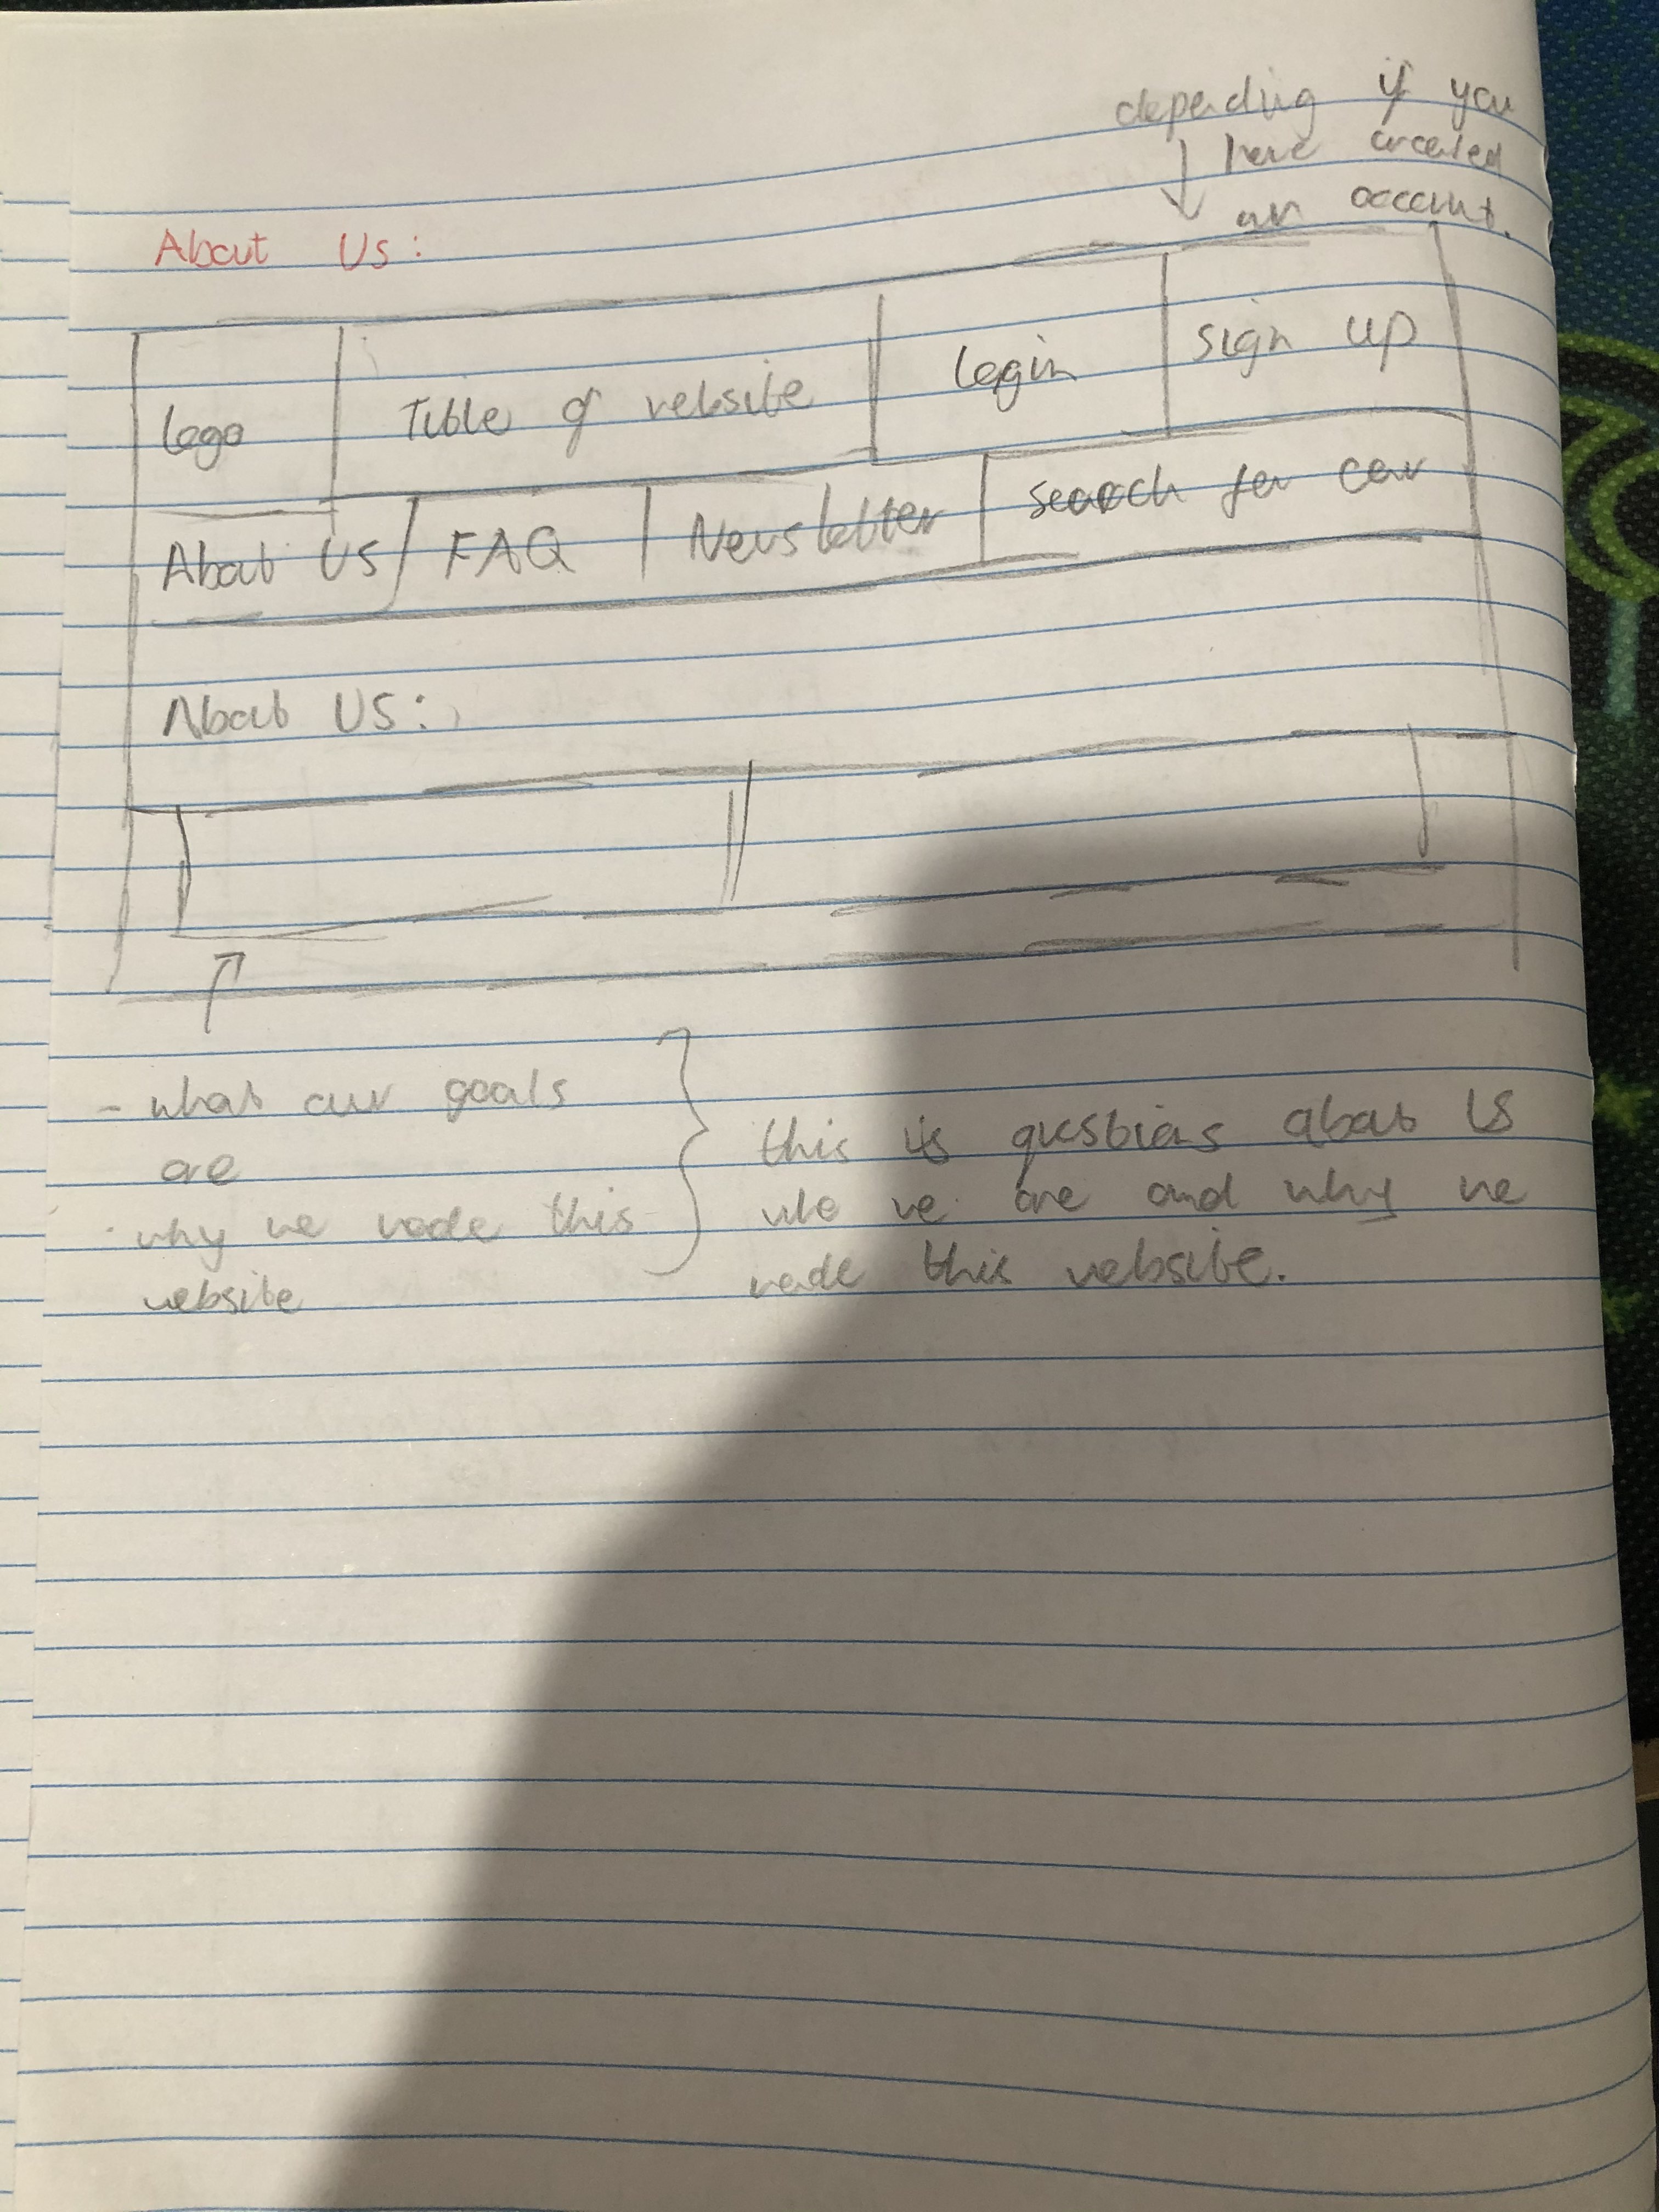 depending if you
have created
an account.
About Us:
Logo
Title of website
login
sign up
About US
FAQ
Newsletter
search for car
About US:
- what our goals
are
- why we made this
website
this is questions about US
who we are and why we
made this website.